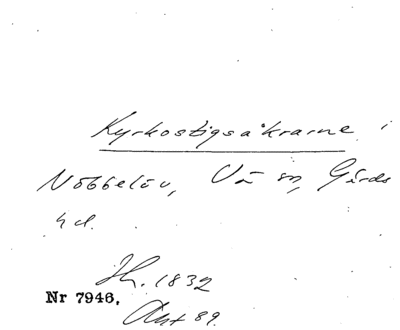 Kyrkostigsåkrarne i
Nöbbelöv, Vä sn, Gärds
hd.
Sk. 1832
Nr 7946.
Akt 89.